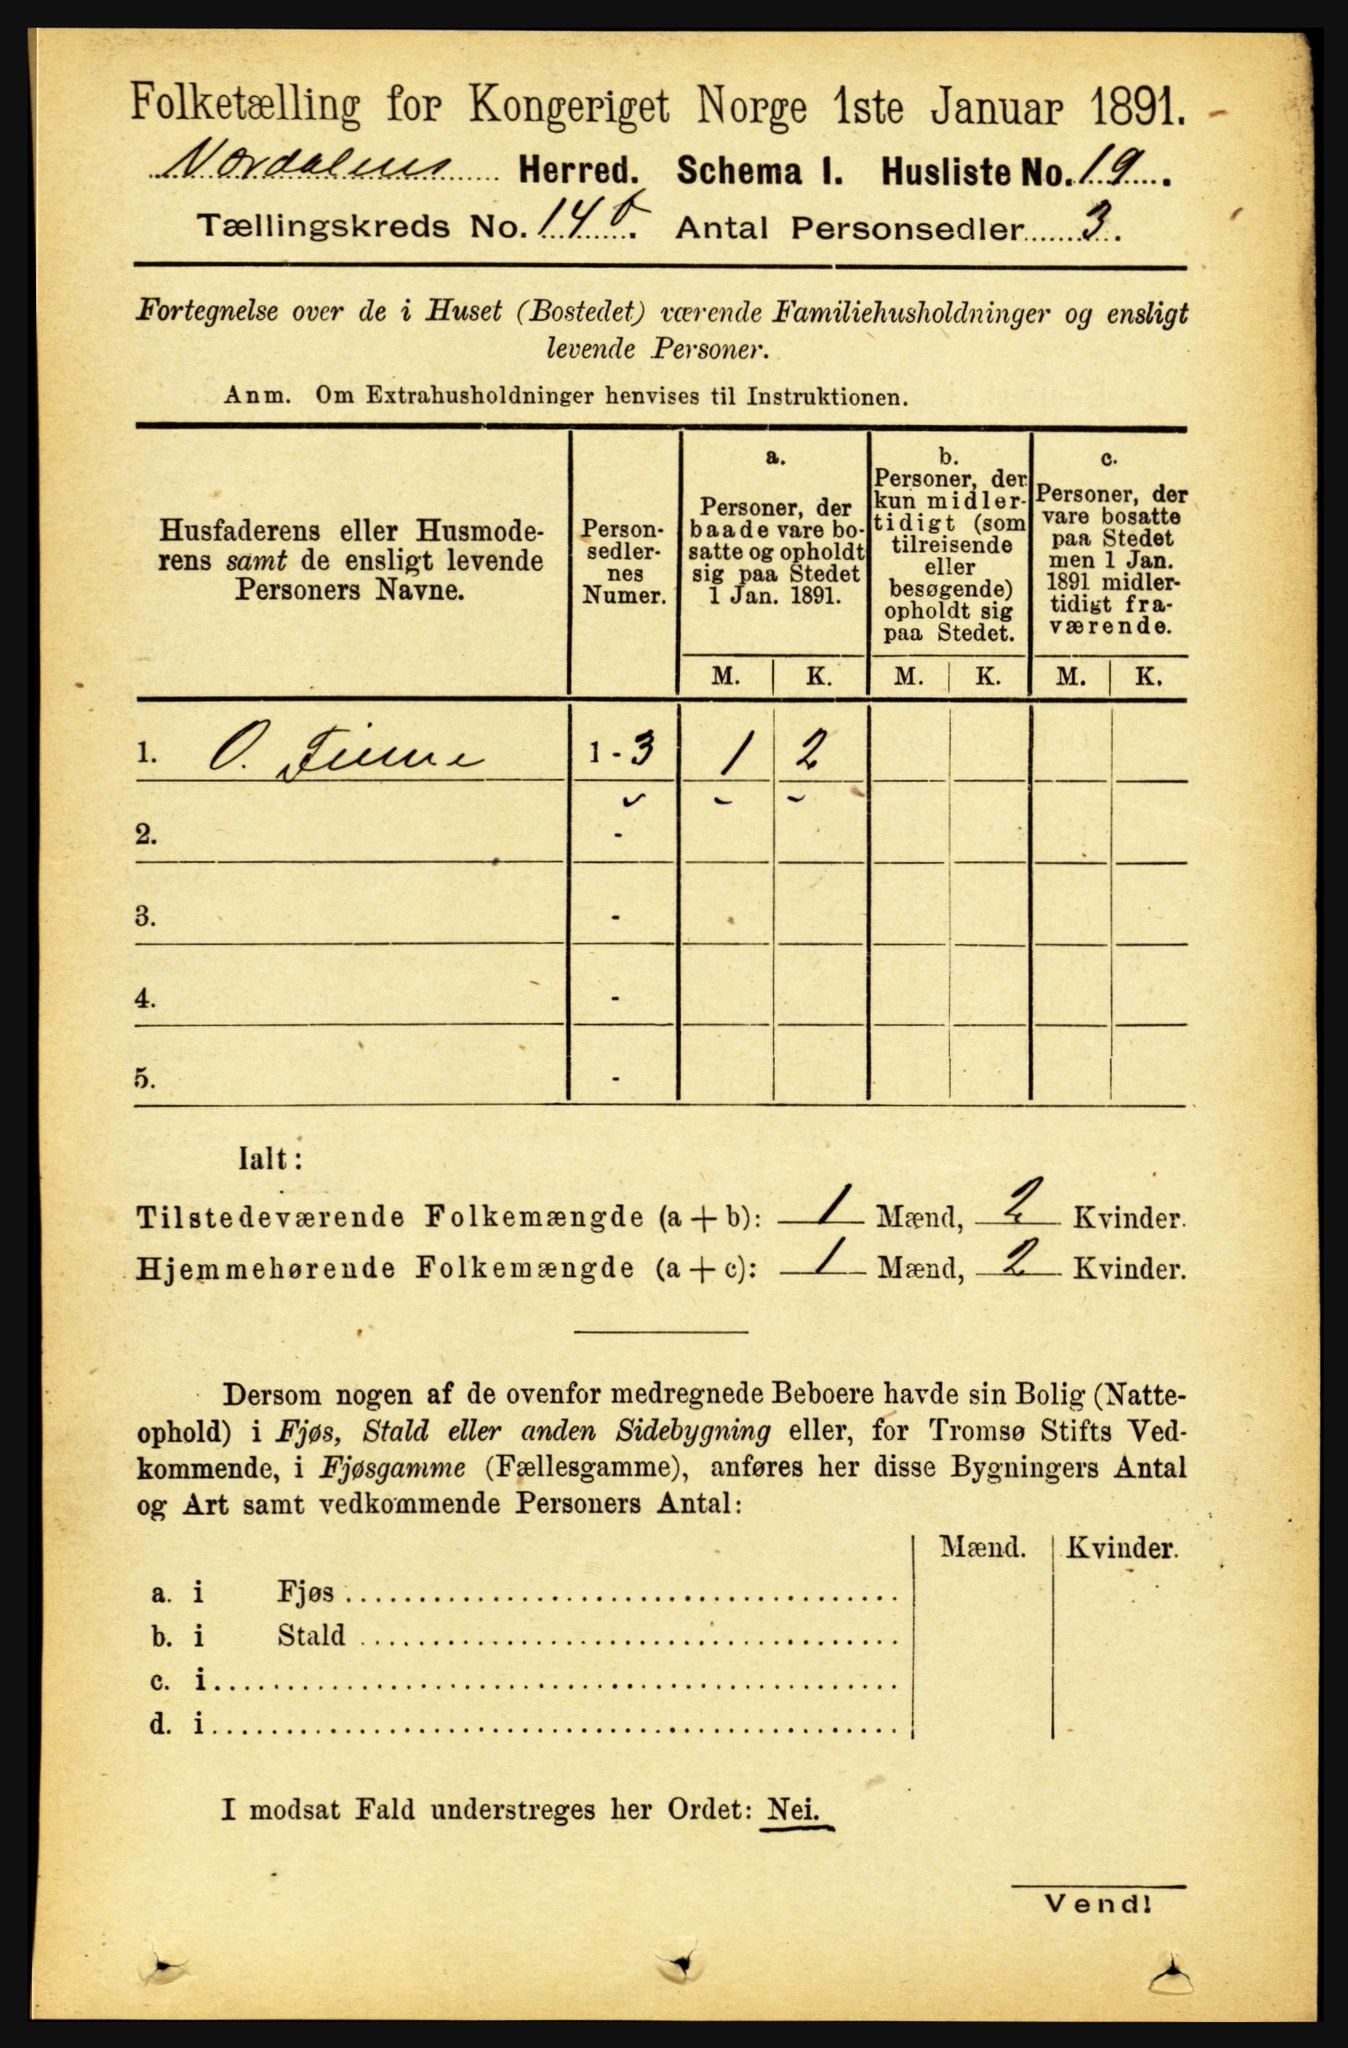 Folketælling for Kongeriget Norge 1ste Januar 1891.
Nordalens Herred. Schema I. Husliste No. 19.
Tællingskreds No. 14 b. Antal Personsedler 3.
Fortegnelse over de i Huset (Bostedet) værende Familiehusholdninger og ensligt
levende Personer.
Anm. Om Extrahusholdninger henvises til Instruktionen.
Husfaderens eller Husmode-
rens samt de ensligt levende
Personers Navne.
Person-
sedler-
nes
Numer.
a.
Personer, der
baade vare bo-
satte og opholdt
sig paa Stedet
1 Jan. 1891.
b.
Personer, der
kun midler-
tidigt (som
tilreisende
eller
besøgende)
opholdt sig
paa Stedet.
c.
Personer, der
vare bosatte
paa Stedet
men 1 Jan.
1891 midler-
tidigt fra-
værende.
M. K. M. K. M. K.
1. O. 1 - 3 1 2
2. -
3. -
4. -
5. -
Ialt:
Tilstedeværende Folkemængde (a + b): 1 Mænd, 2 Kvinder.
Hjemmehørende Folkemængde (a + c): 1 Mænd, 2 Kvinder.
Dersom nogen af de ovenfor medregnede Beboere havde sin Bolig (Natte-
ophold) i Fjøs, Stald eller anden Sidebygning eller, for Tromsø Stifts Ved-
kommende, i Fjøsgamme (Fællesgamme), anføres her disse Bygningers Antal
og Art samt vedkommende Personers Antal:
Mænd. Kvinder.
a. i Fjøs
b. i Stald
c. i
d. i
I modsat Fald understreges her Ordet: Nei.
Vend!